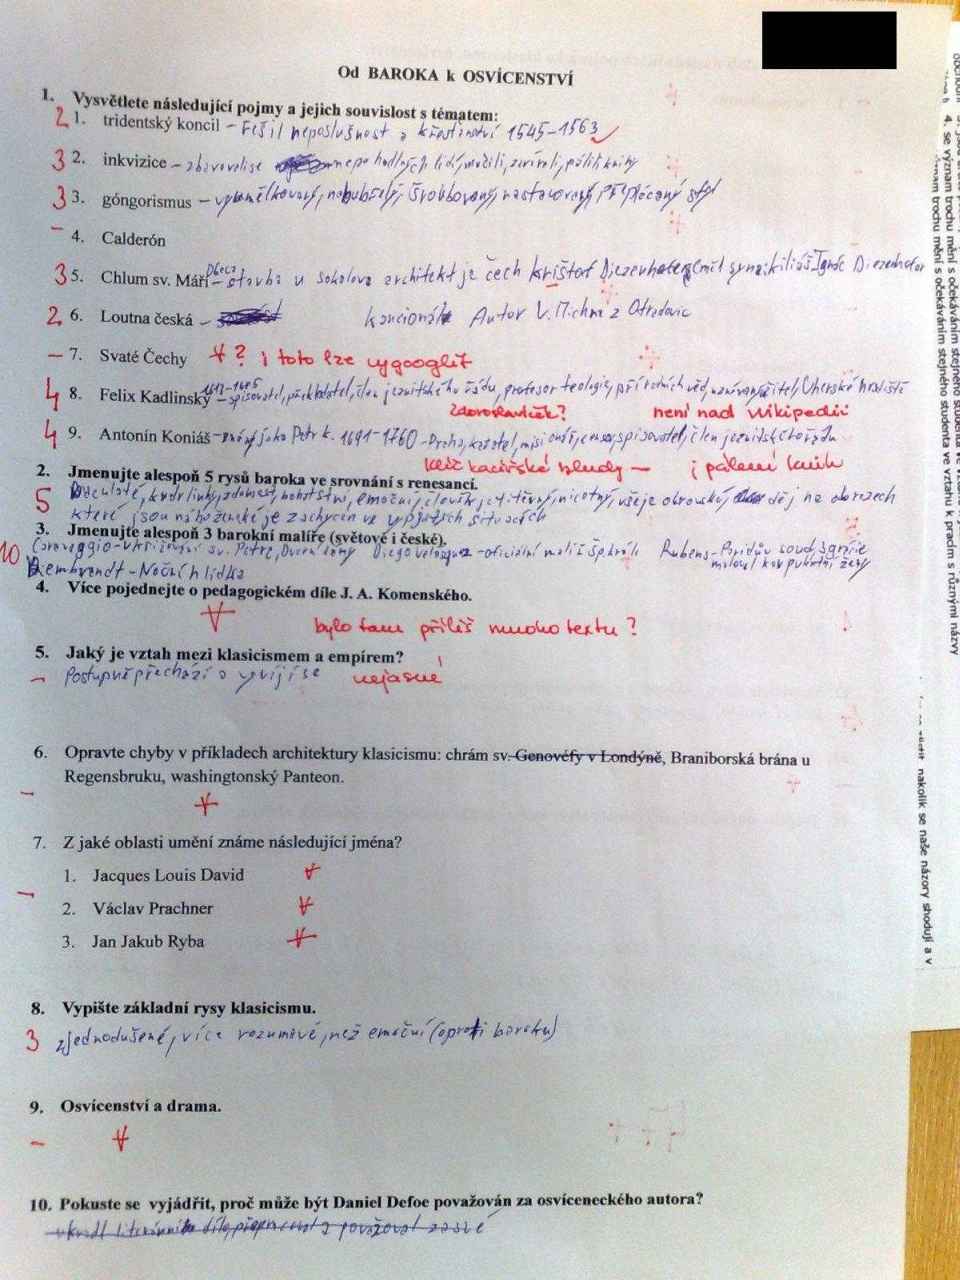 Od BAROKA k OSVÍCENSTVÍ
1. Vysvětlete následující pojmy a jejich souvislost s tématem:
2 1. tridentský koncil – řešil neposlušnost křesťanství 1545–1563
3 2. inkvizice – zbavovali se nepohodlných lidí, mučili, zavírali, pálili knihy
3 3. góngorismus – vyumělkovaný, nabubřelý, šroubovaný, nastavovaný, přeplácaný styl
– 4. Calderón
3 5. Chlum sv. Máří – stavba u Sokolova architekt je čech Krištof Diezenhofer, syn: kilián Ignác Diezenhofer
2 6. Loutna česká – kancionál Autor V. Michna z Otradovic
– 7. Svaté Čechy ? i toto lze vygooglit
4 8. Felix Kadlinský – 1613–1675 spisovatel, překladatel, člen jezuitského řádu, profesor teologie, přírodních věd, Uherské hradiště
Zdoroslavíček? není nad Wikipedii
4 9. Antonín Koniáš – 1691–1760 – Praha, kazatel, misionář, censor, spisovatel, člen jezuitského řádu
Klíč kacířské bludy – i pálení knih
2. Jmenujte alespoň 5 rysů baroka ve srovnání s renesancí.
5 kudrlinky, zdobnost, bohatství, emoční, člověk je titěrný, nicotný, vše je obrovské, děj na obrazech
které jsou náboženské je zachycen ve vypjatých situacích
3. Jmenujte alespoň 3 barokní malíře (světové i české).
10 Caravaggio – Ukřižování sv. Petra, Diego Velasquez – oficiální malíř šp. králi Rubens – Paridův soud, 3 grácie
maloval korpulentní ženy
Rembrandt – Noční hlídka
4. Více pojednejte o pedagogickém díle J. A. Komenského.
bylo tam příliš mnoho textu?
5. Jaký je vztah mezi klasicismem a empírem?
– Postupně přechází a vyvíjí se nejasné
6. Opravte chyby v příkladech architektury klasicismu: chrám sv. Genovéfy v Londýně, Braniborská brána u
Regensbruku, washingtonský Panteon.
–
7. Z jaké oblasti umění známe následující jména?
1. Jacques Louis David
–
2. Václav Prachner
3. Jan Jakub Ryba
8. Vypište základní rysy klasicismu.
3 zjednodušené, více rozumové, než emoční (oproti baroku)
9. Osvícenství a drama.
–
10. Pokuste se vyjádřit, proč může být Daniel Defoe považován za osvíceneckého autora?